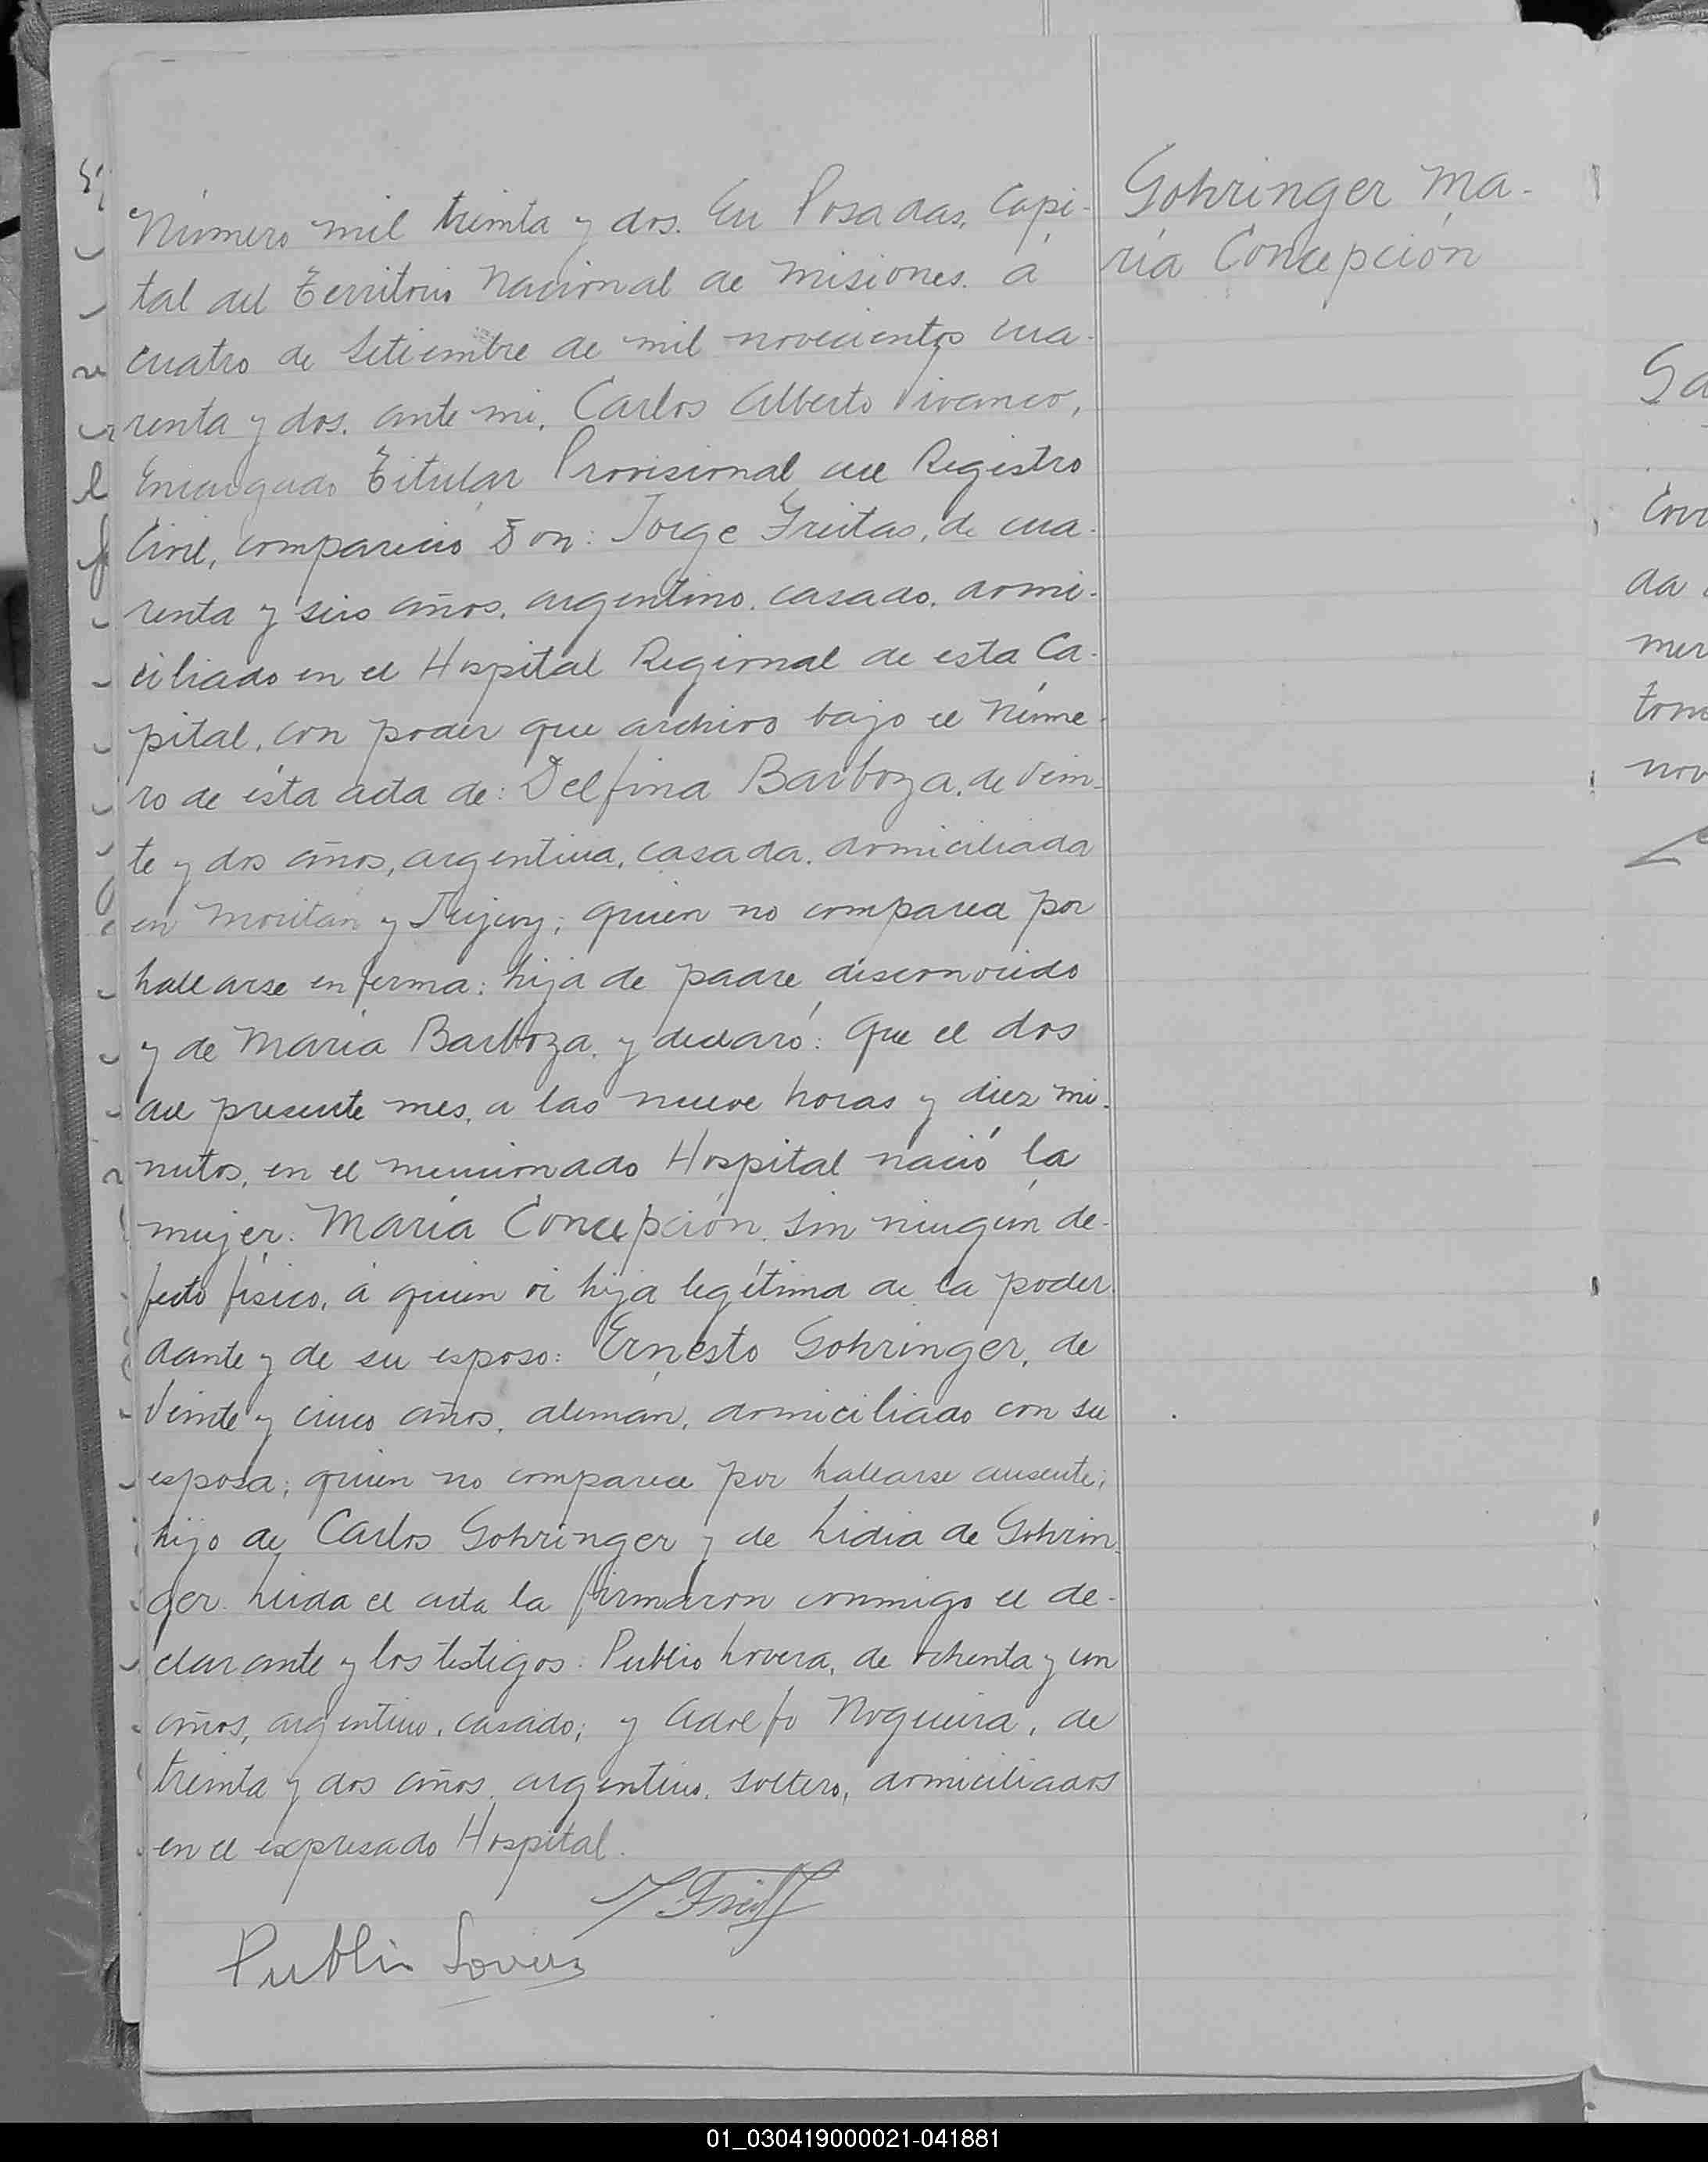 Gohringer Ma-
ría Concepción
Número mil treinta y dos. En Posadas, Capi-
tal del Territorio Nacional de Misiones. á
cuatro de Setiembre de mil novecientos cua-
renta y dos. ante mi, Carlos Alberto Vivanco,
Encargado Titular Provisional del Registro
Civil, compareció Don: Jorge Freitas, de cua-
renta y seis años, argentino, casado, domi-
ciliado en el Hospital Regional de esta Ca-
pital, con poder que archivo bajo el Núme-
ro de ésta acta de: Delfina Barboza, de vein-
te y dos años, argentina, casada, domiciliada
en y Jujuy; quien no comparece por
hallarse enferma: hija de padre desconocido
y de María Barboza, y declaró: Que el dos
del presente mes, a las nueve horas y diez mi-
nutos, en el mencionado Hospital nació la
mujer: María Concepción, sin ningún de-
fecto físico, á quien vi hija legítima de la poder-
dante y de su esposo: Ernesto Gohringer, de
veinte y cinco años, alemán, domiciliado con su
esposa; quien no comparece por hallarse ausente;
hijo de Carlos Gohringer y de Lidia de Gohrin-
ger. Leida el acta la firmaron conmigo el de-
clarante y los testigos: Publio Lovera, de ochenta y un
años, argentino, casado; y Adolfo Nogueira, de
treinta y dos años, argentino, soltero, domiciliados
en el expresado Hospital.
Publio Lovera
01_030419000021-041881